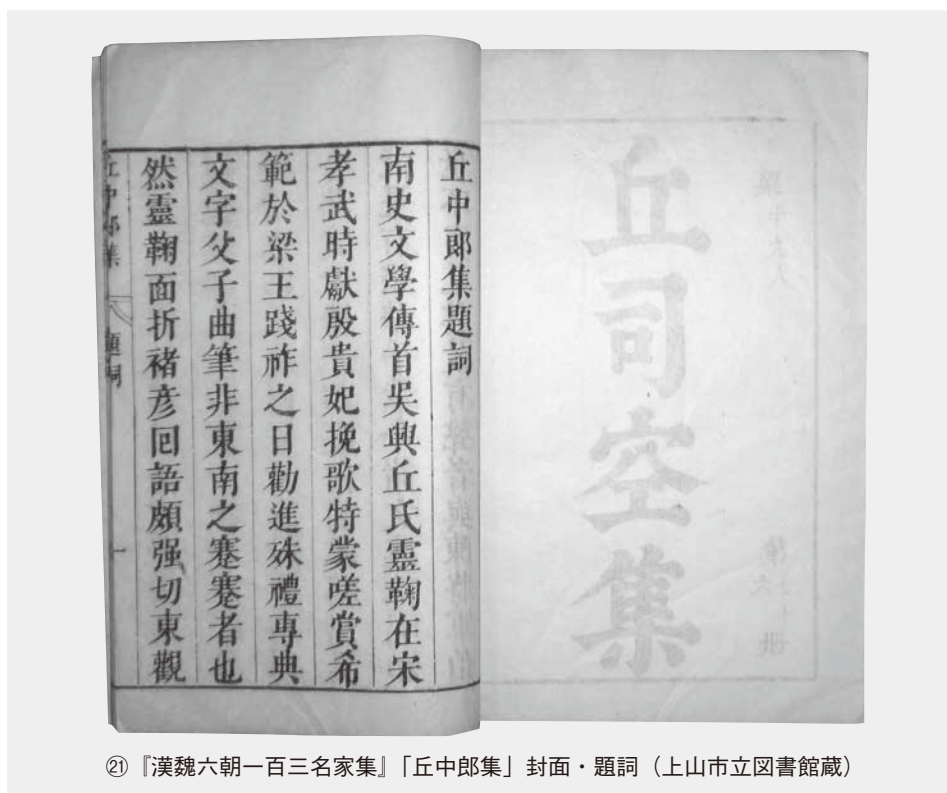 丘司空集
丘中郎集題詞
南史文學傳首吳興丘氏靈鞠在宋
孝武時獻殷貴妃挽歌特蒙嗟賞希
範於梁王踐祚之日勸進殊禮專典
文字父子曲筆非東南之蹇蹇者也
然靈鞠面折褚彥回語頗强切東觀
丘中郎集 題詞 一
㉑『漢魏六朝一百三名家集』「丘中郎集」封面・題詞（上山市立図書館蔵）